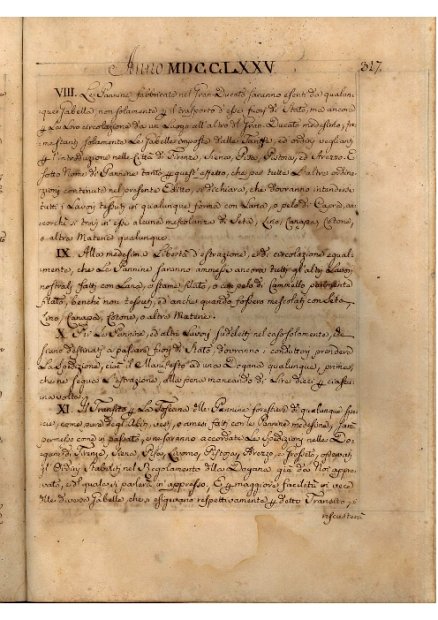 Anno MDCCLXXV. 317.
VIII. Le Pannine fabbricate nel Gran Ducato saranno esenti da qualun-
que Gabella non solamente il trasporto d'esse fuori di Stato, ma ancora
la Loro circolazione da un Luogo all'altro del Gran-Ducato medesimo, fer-
me stanti solamente Le Gabelle imposte dalle Tariffe, ed ordini veglianti
l'introduzione nelle Città di Firenze, Siena, Pisa, Pistoja, ed Arezzo. E
sotto Nome di Pannine tanto quest'effetto, che per tutte L'altre ordina-
zioni contenute nel presente Editto, si dichiara, che dovranno intendersi
tutti i Lavori tessuti in qualunque forma con Lana, o pelo di Capra, an-
corchè vi sia in esse alcuna mescolanza di Seta, Lino, Canapa, Cotone,
o altra Materia qualunque.
IX. Alla medesima Libertà d'estrazione, e di circolazione egual-
mente, che Le Pannine saranno ammessi ancora tutti gli altri Lavori
nostrali fatti con Lana, o stame filato, o con pelo di Cammello parimente
filato, benchè non tessuti, ed anche quando fossero mescolati con Seta,
Lino, Canapa, Cotone, o altra Materia.
X. Le Pannine, ed altri Lavori suddetti nel caso solamente, che
siano destinati a passare fuori di Stato, dovranno i conduttori prendere
La Spedizione, cioè il Manifesto ad una Dogana qualunque, prima
che ne segua L'estrazione, alla pena mancando di Lire dieci ciasche-
duna volta.
XI. Il Transito La Toscana delle Pannine forestiere di qualunque spe-
cie, come pure degli Abiti, vesti, o arnesi fatti con le Pannine medesime, sarà
permesso come in passato, e ne saranno accordate Le Spedizioni nelle Do-
gane di Firenze, Siena, Pisa, Livorno, Pistoja, Arezzo, e Grosseto, osservati
gl'Ordini stabiliti nel Regolamento della Dogana già da Noi appro-
vato, del quale si parlerà in appresso, E maggiore facilità in vece
delle diverse Gabelle che si esigevano respettivamente detto Transito, si
riscuoterà